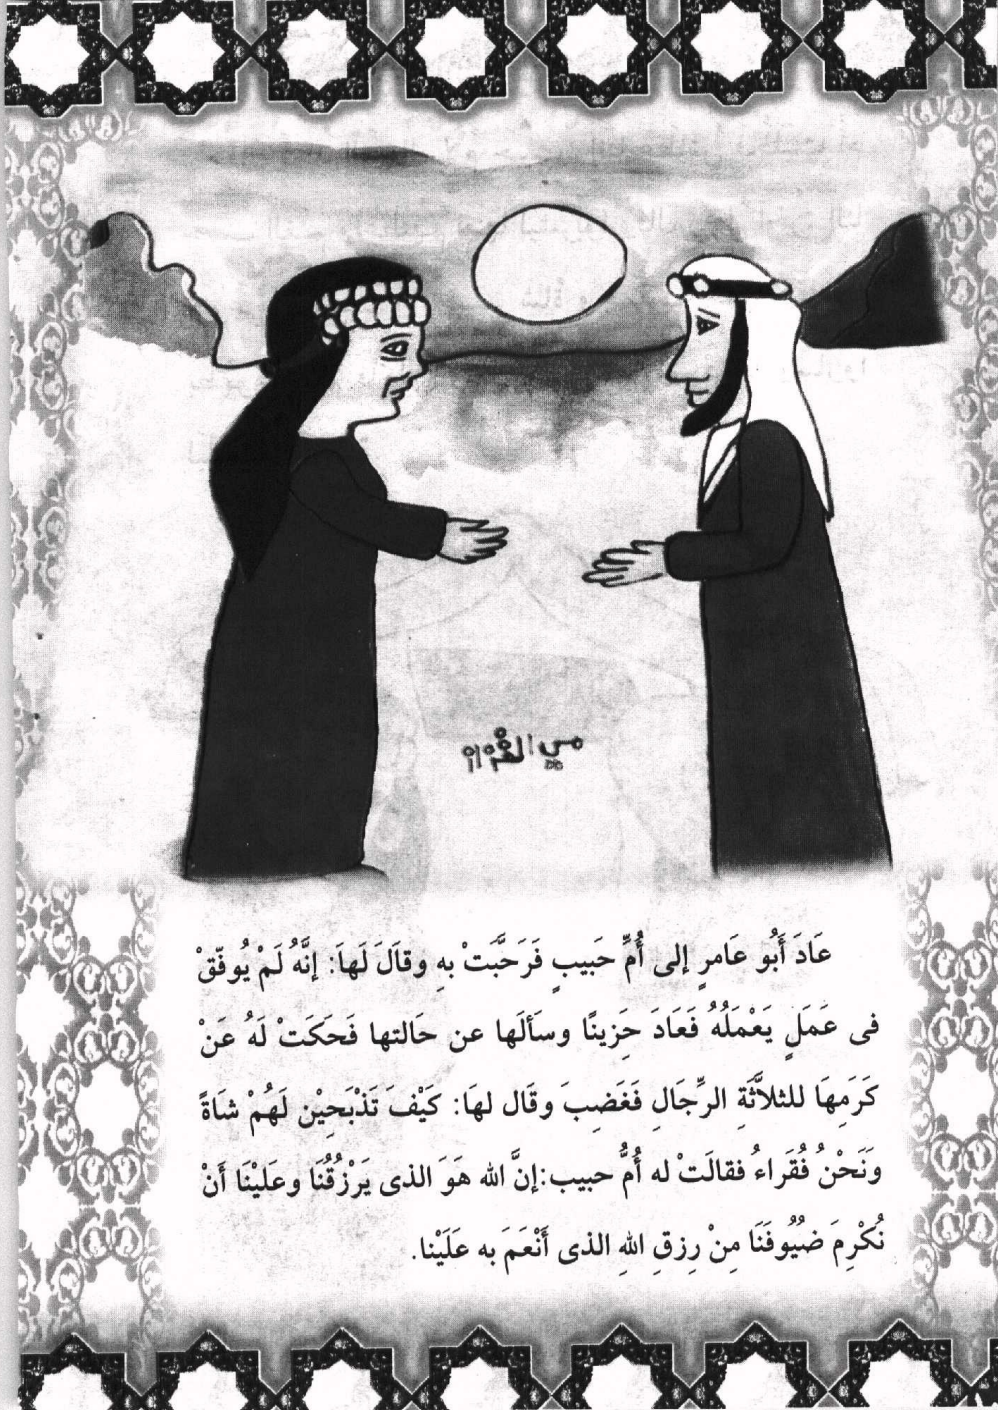 عَادَ أَبُو عَامرٍ إلى أُمِّ حَبيبٍ فَرَحَّبَتْ بهِ وقاَلَ لَهاَ: إنَّهُ لَمْ يُوفّقْ
فى عَمَلٍ يَعْمَلُهُ فَعَادَ حَزِينًا وسَألَها عن حَالتها فَحَكَتْ لَهُ عَنْ
كَرَمِهَا للثلاَّثَةِ الرِّجَالِ فَغَضِبَ وقَال لهَا: كَيْفَ تَذْبَحِيْن لَهُمْ شاَةً
وَنَحْنُ فُقَراءُ فقالَتْ له أُمُّ حبيب:إنَّ الله هَوَ الذى يَرْزُقُنَا وعَليْنَا أَنْ
نُكْرِمَ ضُيُوفَنَا مِنْ رِزقِ اللهِ الذى أَنْعَمَ به عَلَيْنا.